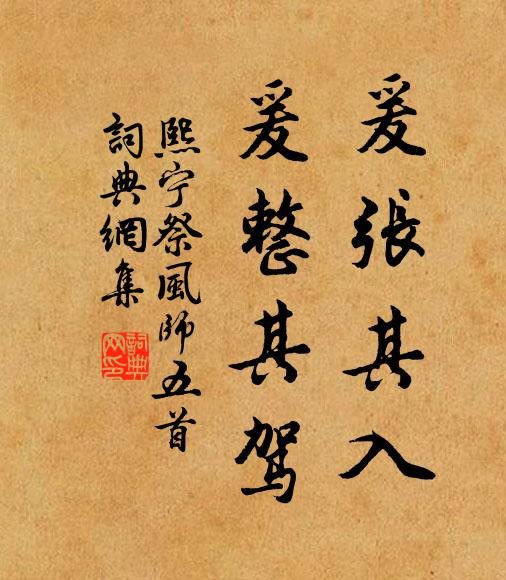 爰張其入
爰整其駕
熙宁祭風師五首
詞典網集
詞典
网印